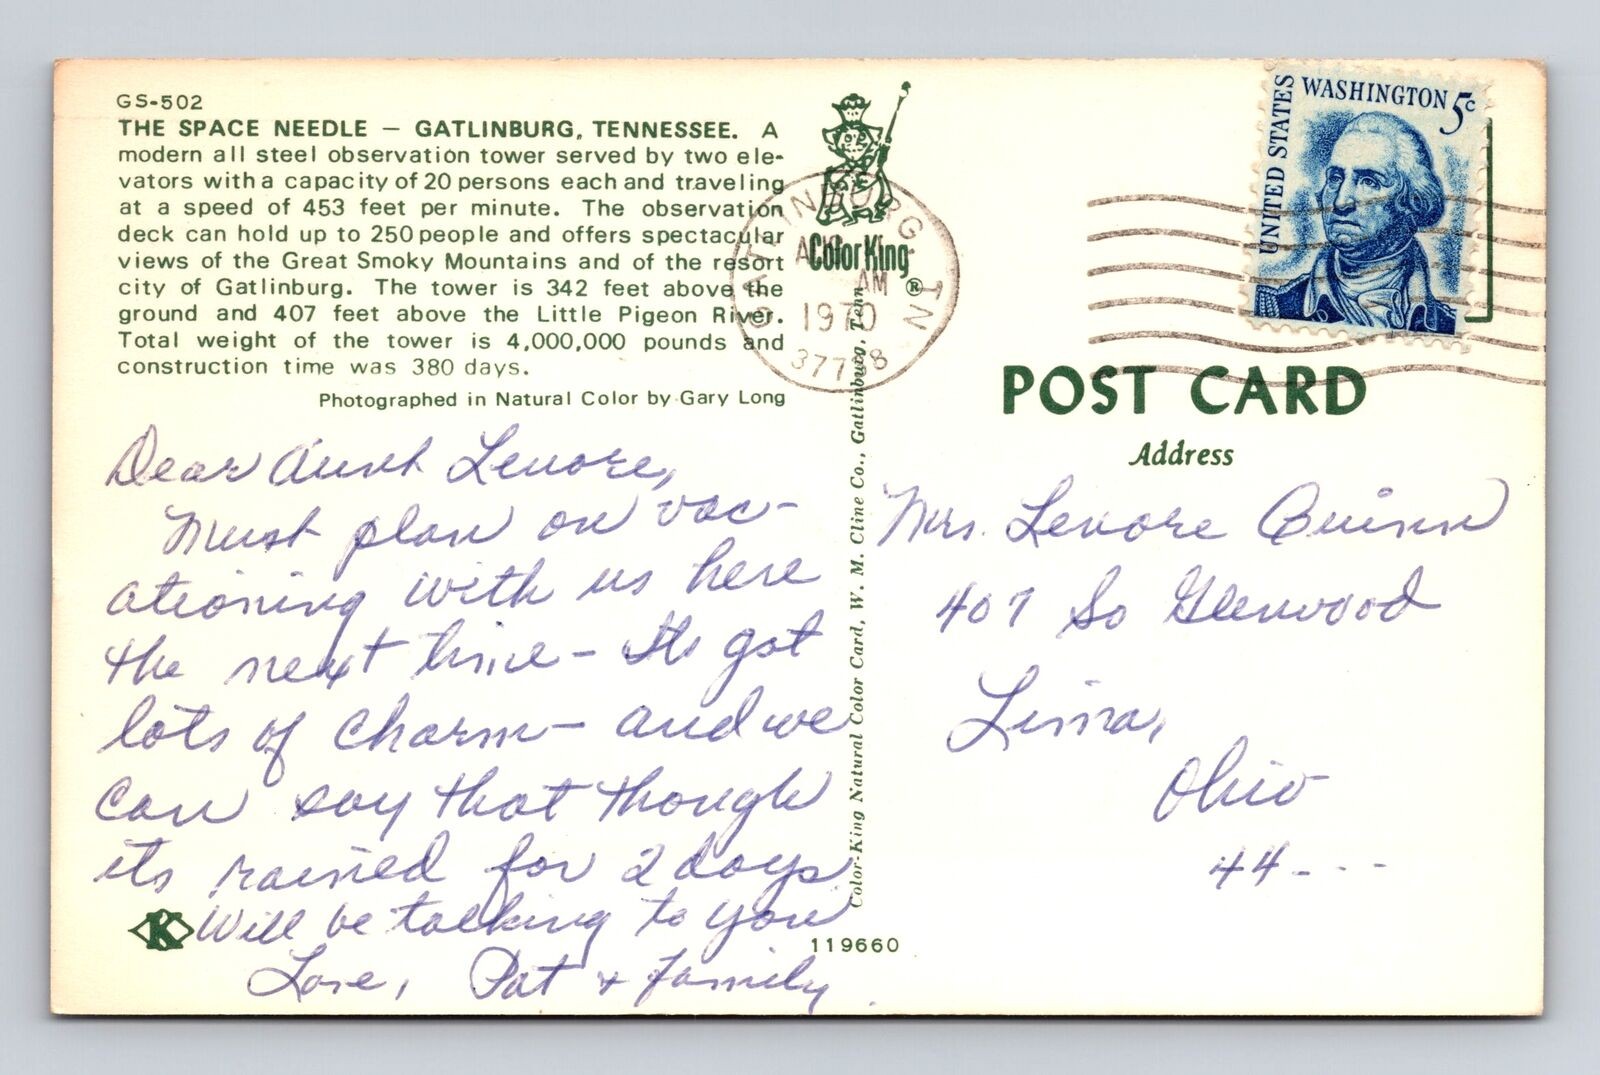 GS-502
THE SPACE NEEDLE — GATLINBURG, TENNESSEE. A
modern all steel observation tower served by two ele-
vators with a capacity of 20 persons each and traveling
at a speed of 453 feet per minute. The observation
deck can hold up to 250 people and offers spectacular
views of the Great Smoky Mountains and of the resort
city of Gatlinburg. The tower is 342 feet above the
ground and 407 feet above the Little Pigeon River.
Total weight of the tower is 4,000,000 pounds and
construction time was 380 days.
Photographed in Natural Color by Gary Long
Dear Aunt Lenore,
Must plan on vac-
ationing with us here
the next time - Its got
lots of charm - and we
can say that though
its rained for 2 days.
Will be talking to you
Love, Pat + Family
K
Color King ®
GATLINBURG, TN
AM
1970
377 8
Color-King Natural Color Card, W. M. Cline Co., Gatlinburg, Tenn
119660
UNITED STATES
WASHINGTON 5c
POST CARD
Address
Mrs. Lenore Quinn
407 So Glenwood
Lima,
Ohio
44---